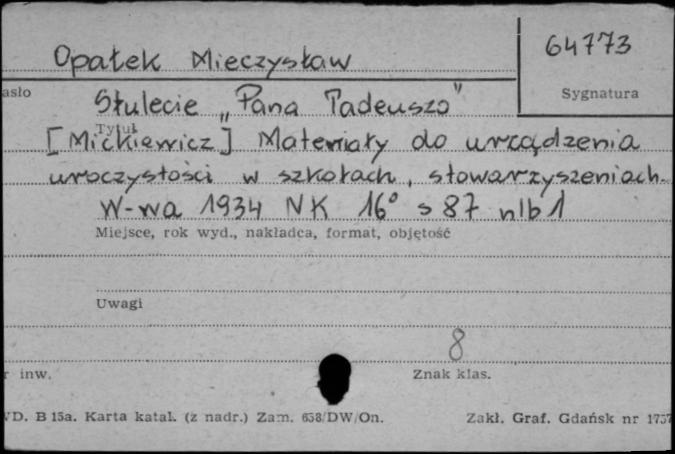 Opałek Mieczysław
64773
asło
Sygnatura
Stulecie „Pana Tadeusza"
Tytuł
[Mickiewicz] Materiały do urządzenia
uroczystości w szkołach, stowarzyszeniach.
W-wa 1934 NK 16° s 87 nlb 1
Miejsce, rok wyd., nakładca, format, objętość
Uwagi
8
r inw.
Znak klas.
D. B 15a. Karta katal. (z nadr.) Zam. 638/DW/On.
Zakł. Graf. Gdańsk nr 1757